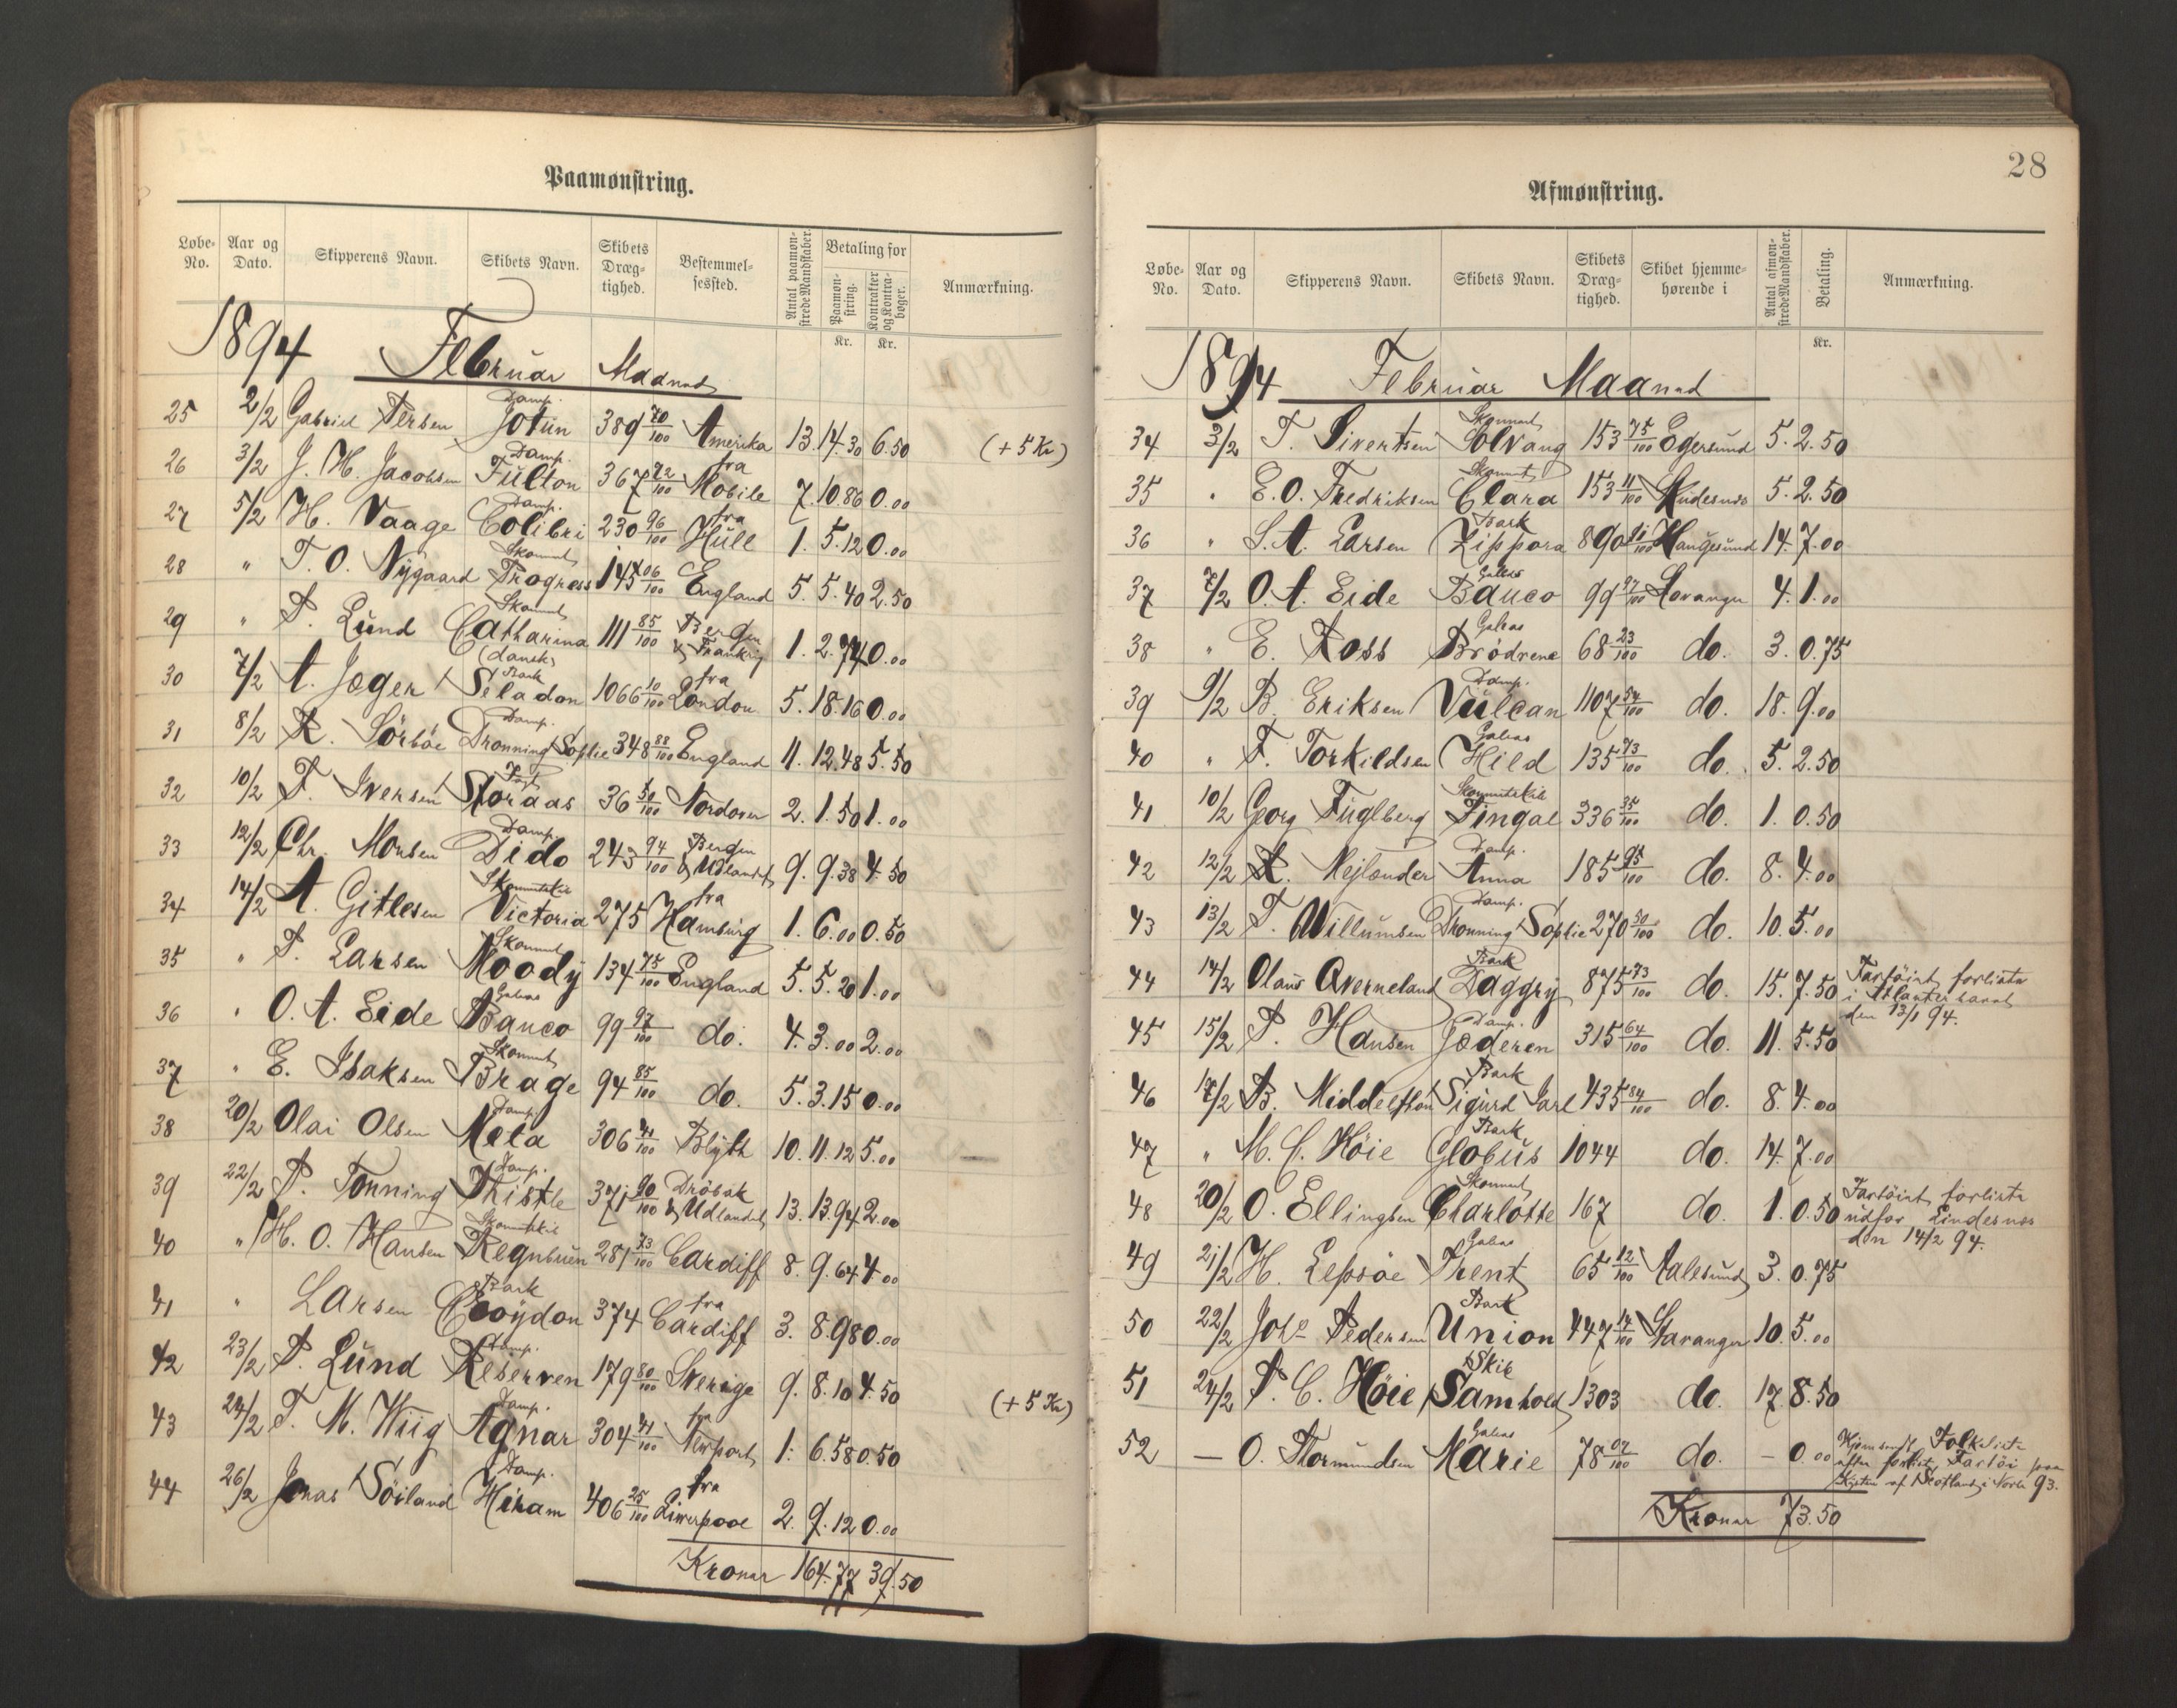 Paamønstring.
Løbe-No. Aar og Dato. Skipperens Navn. Skibets Navn. Skibets Dræg-tighed. Bestemmel-sessted. Antal paamøn-strede Mandskaber. Betaling for Paamøn-string. Kontrakter og Kontra-bøger. Anmærkning.
Kr. Kr.
1894 Februar Maaned
25 2/2 Gabriel Iversen Damp. Jotun 389 70/100 Amerika 13. 14.30 6.50 (+5 Kr)
26 3/2 J. H. Jacobsen Damp. Fulton 367 72/100 fra Mobile 7. 10.86 0.00
27 5/2 H. Vaage Damp. Colibri 230 96/100 fra Hull 1. 5.12 0.00
28 " T. O. Nÿgaard Skonnert Progress 145 06/100 England 5. 5.40 2.50
29 " P. Lund Skonnert Catharina 111 85/100 Bergen & Frankrig 1. 2.74 0.00
30 7/2 A. Jæger (dansk) Bark Seladon 1066 10/100 fra London 5. 18.16 0.00
31 8/2 K. Sörböe Damp. Dronning Sophie 348 88/100 England 11. 12.48 5.50
32 10/2 T. Iversen Jagt Storaas 36 50/100 Nordover 2. 1.50 1.00
33 12/2 Chr. Monsen Damp. Dido 243 94/100 Bergen & Udlandet 9. 9.38 4.50
34 14/2 A. Gitlesen Skonnertskib Victoria 275 fra Hamburg 1. 6.00 0.50
35 " P. Larsen Skonnert Moody 134 75/100 England 5. 5.20 1.00
36 " O. A. Eide Galeas Banco 99 97/100 do. 4. 3.00 2.00
37 " E. Isaksen Skonnert Brage 94 85/100 do. 5. 3.15 0.00
38 20/2 Olai Olsen Damp. Mela 306 41/100 Blyth 10. 11.12 5.00
39 22/2 P. Tonning Damp. Thistle 371 90/100 Dröbak & Udlandet 13. 13.94 2.00
40 " H. O. Hansen Skonnertskib Regnbuen 281 73/100 Cardiff 8. 9.64 4.00
41 " Larsen Bark Croÿdon 374 fra Cardiff 3. 8.98 0.00
42 23/2 P. Lund Damp. Reserven 179 80/100 Sverige 9. 8.10 4.50 (+5 Kr)
43 24/2 T. M. Wiig Damp. Agnar 304 41/100 fra Newport 1. 6.58 0.50
44 26/2 Jonas Söiland Damp. Hiram 406 25/100 fra Liverpool 2. 9.12 0.00
Kroner 164.77 39.50
28
Afmønstring.
Løbe-No. Aar og Dato. Skipperens Navn. Skibets Navn. Skibets Dræg-tighed. Skibet hjemme-hørende i Antal afmøn-strede Mandskaber. Betaling. Anmærkning.
Kr.
1894 Februar Maaned
34 3/2 T. Sivertsen Skonnert Solvang 153 75/100 Egersund 5. 2.50
35 " E. O. Fredriksen Skonnert Clara 153 11/100 Skudesnes 5. 2.50
36 " S. A. Larsen Bark Zippora 890 91/100 Haugesund 14. 7.00
37 7/2 O. A. Eide Galeas Banco 99 97/100 Stavanger 4. 1.00
38 " E. Ross Galeas Brödrene 68 23/100 do. 3. 0.75
39 9/2 B. Eriksen Damp. Vulcan 1107 54/100 do. 18. 9.00
40 " F. Torkildsen Galeas Hild 135 73/100 do. 5. 2.50
41 10/2 Georg Fuglberg Skonnertskib Fingal 336 35/100 do. 1. 0.50
42 12/2 K. Nejlænder Damp. Anna 185 95/100 do. 8. 4.00
43 13/2 T. Willumsen Damp. Dronning Sophie 270 50/100 do. 10. 5.00
44 14/2 Olaus Qverneland Bark Daggry 875 73/100 do. 15. 7.50 Fartöiet forliste i Atlanterhavet den 13/1 94.
45 15/2 P. Hansen Damp. Jæderen 315 64/100 do. 11. 5.50
46 17/2 B. Middelthon Bark Sigurd Jarl 435 84/100 do. 8. 4.00
47 " M. C. Höie Bark Globus 1044 do. 14. 7.00
48 20/2 O. Ellingsen Skonnert Charlotte 167 do. 1. 0.50 Fartöiet forliste udfor Lindesnes den 14/2 94.
49 21/2 H. Lepsöe Galeas Trent 65 12/100 Aalesund 3. 0.75
50 22/2 Johs Pedersen Bark Union 447 14/100 Stavanger 10. 5.00
51 24/2 P. C. Höie Skib Samhold 1303 do. 17. 8.50
52 — O. Thormundsen Galeas Marie 78 07/100 do. — 0.00 Hjemsendt Folkeliste efter forlist Fartöi paa Kysten af Scotland i Novbr 93.
Kroner 73.50